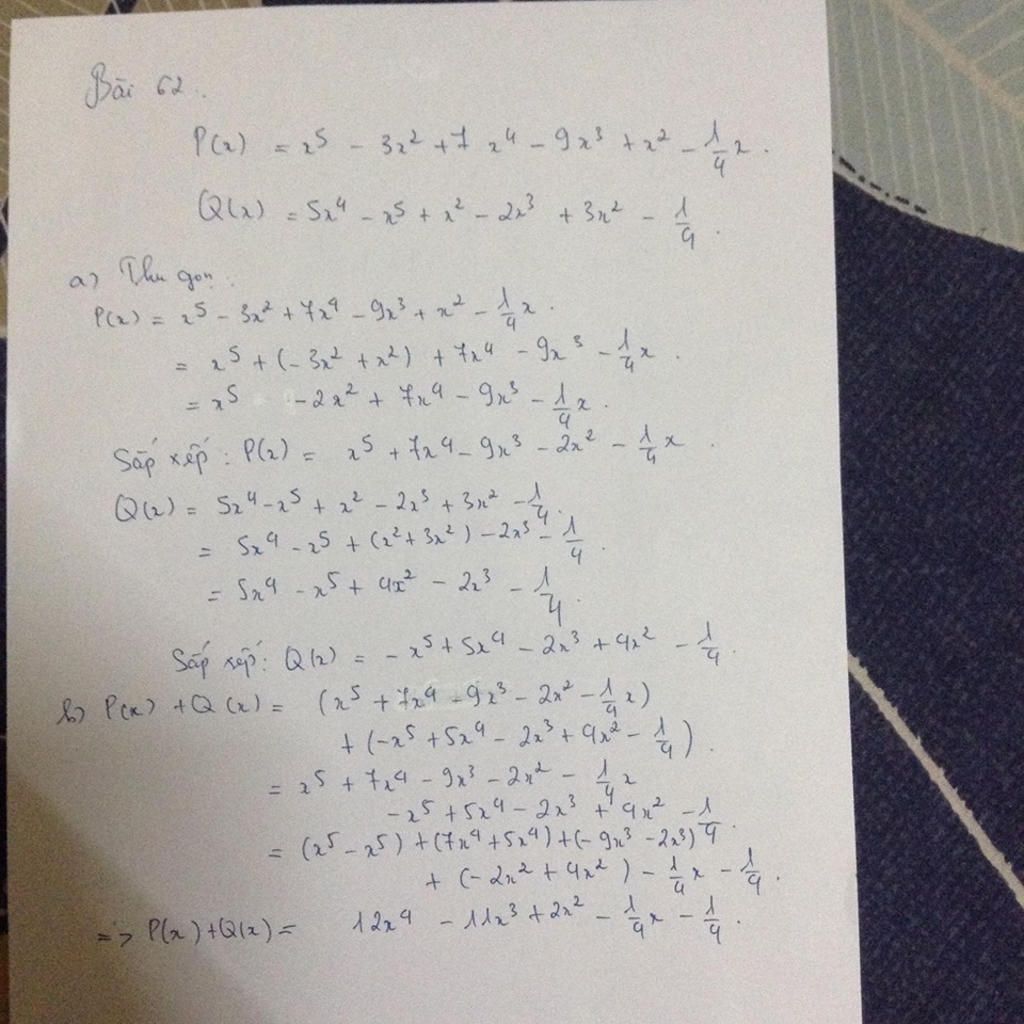 Bài 62.
P(x) = x⁵ - 3x² + 7x⁴ - 9x³ + x² - 1/4 x.
Q(x) = 5x⁴ - x⁵ + x² - 2x³ + 3x² - 1/4.
a) Thu gọn:
P(x) = x⁵ - 3x² + 7x⁴ - 9x³ + x² - 1/4 x.
= x⁵ + (-3x² + x²) + 7x⁴ - 9x³ - 1/4 x.
= x⁵ - 2x² + 7x⁴ - 9x³ - 1/4 x.
Sắp xếp: P(x) = x⁵ + 7x⁴ - 9x³ - 2x² - 1/4 x.
Q(x) = 5x⁴ - x⁵ + x² - 2x³ + 3x² - 1/4.
= 5x⁴ - x⁵ + (x² + 3x²) - 2x³ - 1/4.
= 5x⁴ - x⁵ + 4x² - 2x³ - 1/4.
Sắp xếp: Q(x) = -x⁵ + 5x⁴ - 2x³ + 4x² - 1/4.
b) P(x) + Q(x) = (x⁵ + 7x⁴ - 9x³ - 2x² - 1/4 x)
+ (-x⁵ + 5x⁴ - 2x³ + 4x² - 1/4).
= x⁵ + 7x⁴ - 9x³ - 2x² - 1/4 x
-x⁵ + 5x⁴ - 2x³ + 4x² - 1/4.
= (x⁵ - x⁵) + (7x⁴ + 5x⁴) + (-9x³ - 2x³)
+ (-2x² + 4x²) - 1/4 x - 1/4.
=> P(x) + Q(x) = 12x⁴ - 11x³ + 2x² - 1/4 x - 1/4.